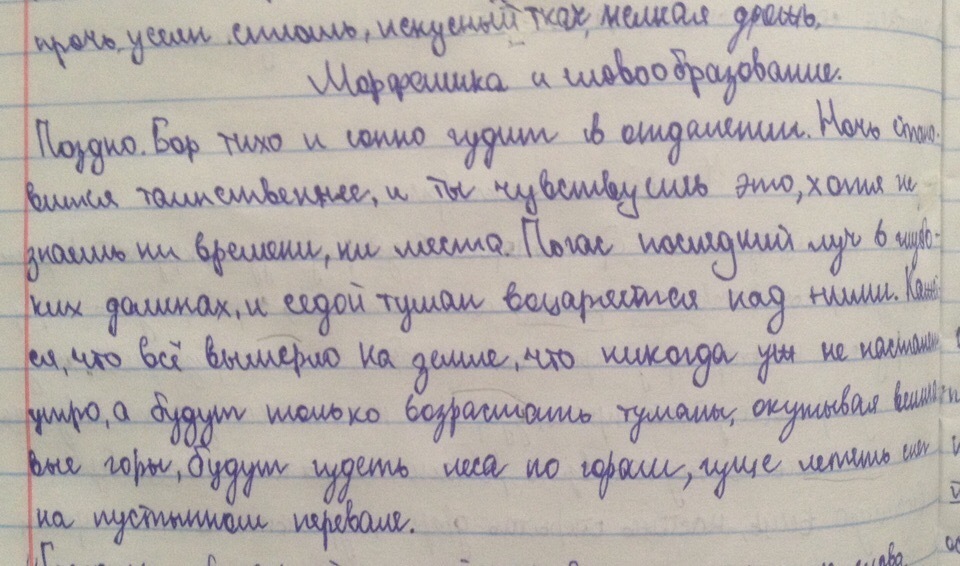 прочь, усеян сплошь, искусный ткач, мелкая дрожь.
Морфемика и словообразование.
Поздно. Бор тихо и сонно гудит в отдалении. Ночь стано-
вится таинственнее, и ты чувствуешь это, хотя не
знаешь ни времени, ни места. Погас последний луч в глубо-
ких долинах, и седой туман воцаряется над ними. Кажет-
ся, что всё вымерло на земле, что никогда уж не настанет
утро, а будут только возрастать туманы, окутывая велича-
вые горы, будут гудеть леса по горам, гуще лететь снег
на пустынном перевале.